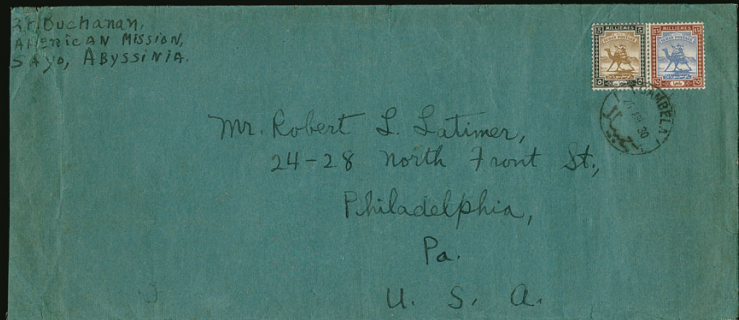 Buchanan,
American Mission,
Sayo, Abyssinia.
MILLIEMES MILLIEMES
GAMBELA
30
Mr. Robert L. Latimer,
24-28 North Front St.,
Philadelphia,
Pa.
U. S. A.